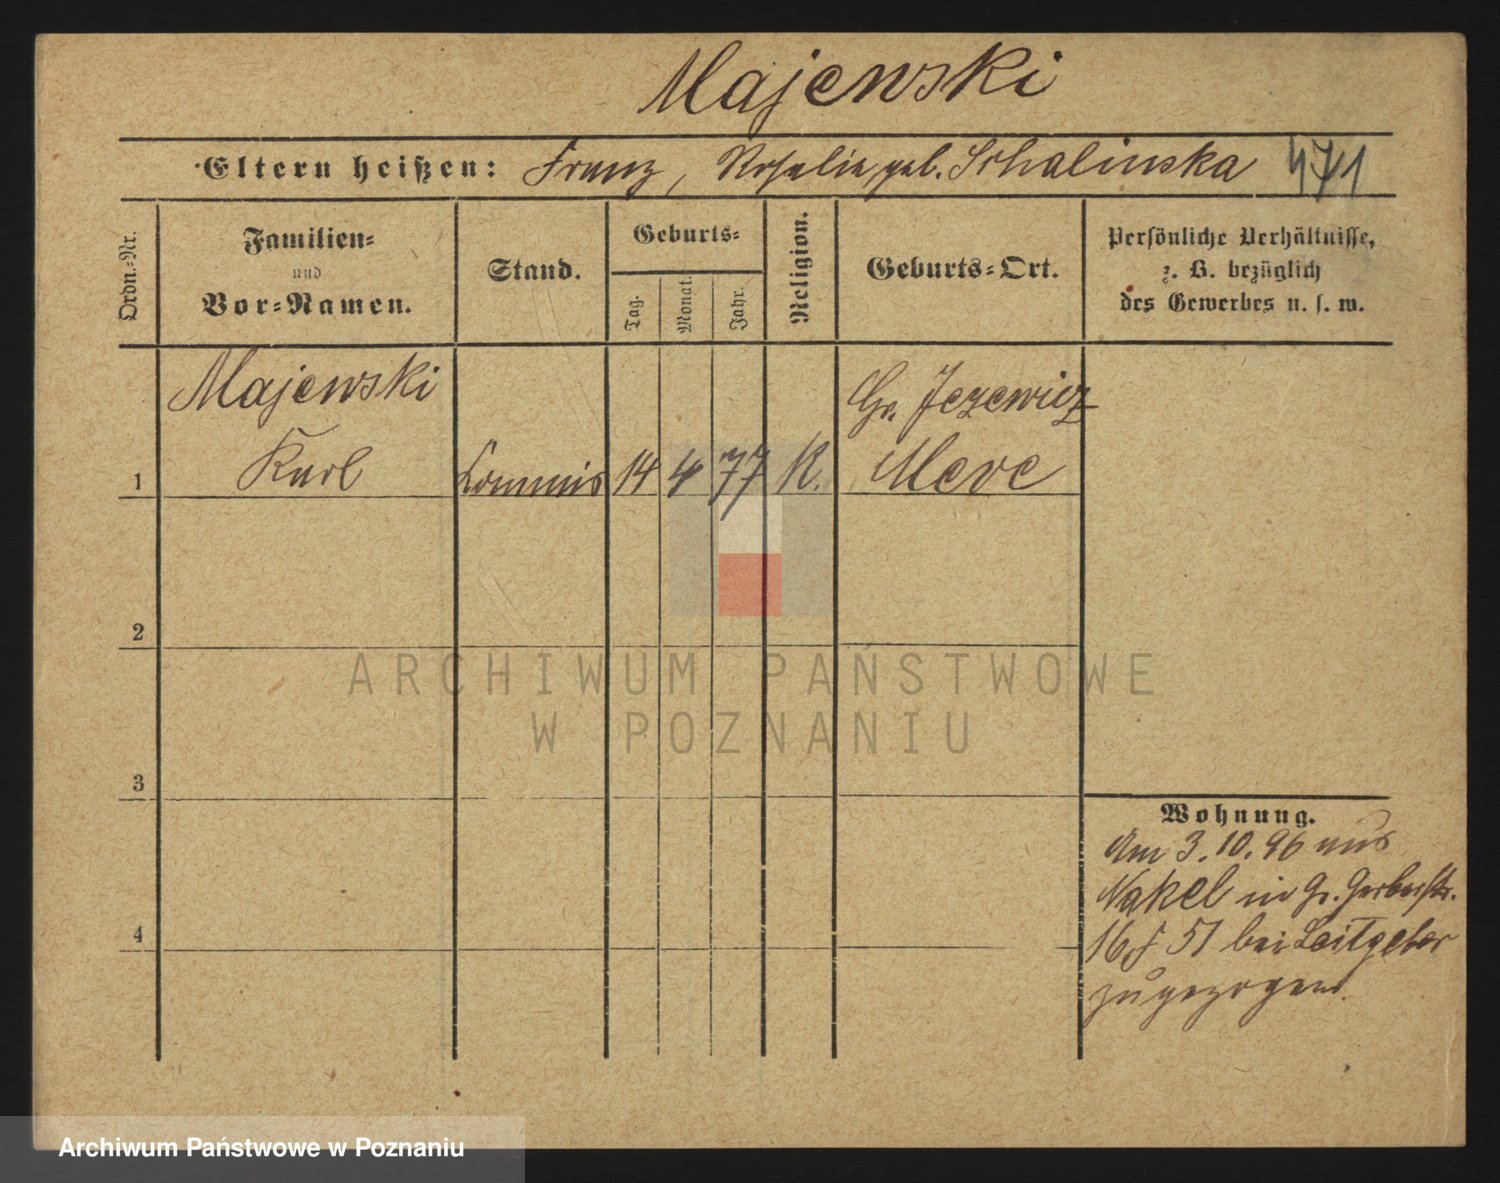 Majewski
Eltern heißen: Franz, Rosalie geb. Schalinska 471
Ordn.-Nr.
Familien-
und
Vor-Namen.
Stand.
Geburts-
Tag.
Monat.
Jahr.
Religion.
Geburts-Ort.
Persönliche Verhältnisse,
z. B. bezüglich
des Gewerbes u. s. w.
Majewski
Karl
Gr. Jezewicz
1 Commis 14 4 77 K. Meve
2
3
4
Wohnung.
Am 3.10.96 aus
Nakel in Gr. Gerberstr.
16 51 bei Leitgeber
zugezogen.
ARCHIWUM PAŃSTWOWE
W POZNANIU
Archiwum Państwowe w Poznaniu